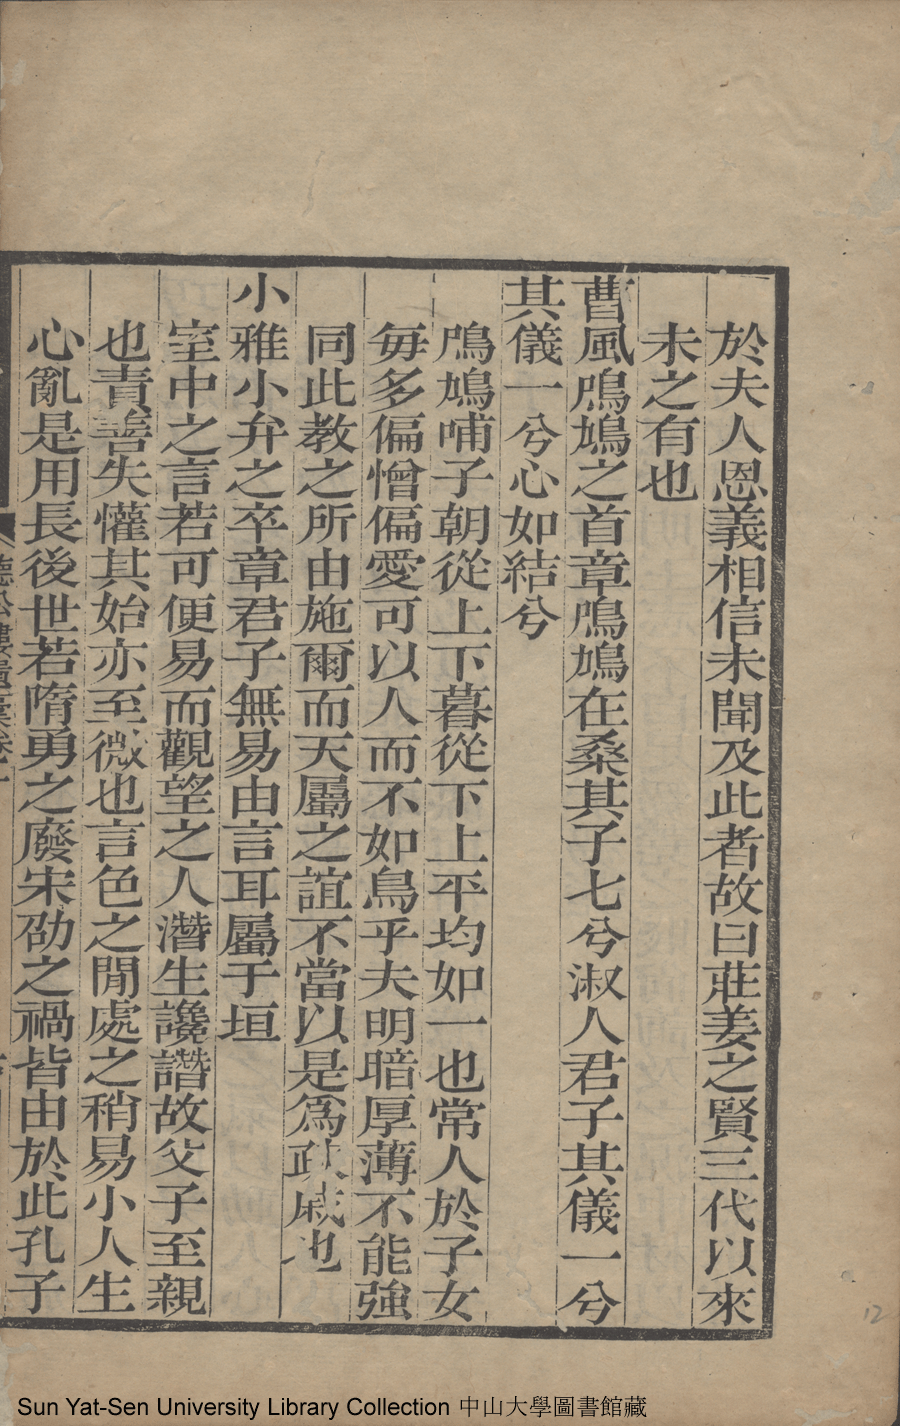 於夫人恩義相信未聞及此者故曰莊姜之賢三代以來
未之有也
曹風鳲鳩之首章鳲鳩在桑其子七兮淑人君子其儀一兮
其儀一兮心如結兮
鳲鳩哺子朝從上下暮從下上平均如一也常人於子女
每多偏憎偏愛可以人而不如鳥乎夫明暗厚薄不能強
同此教之所由施爾而天屬之誼不當以是爲疎戚也
小雅小弁之卒章君子無易由言耳屬于垣
室中之言若可便易而觀望之人潛生讒譖故父子至親
也責善失懽其始亦至微也言色之閒處之稍易小人生
心亂是用長後世若隋勇之廢宋劭之禍皆由於此孔子
聽松樓遺稾卷一
12
Sun Yat-Sen University Library Collection 中山大學圖書館藏